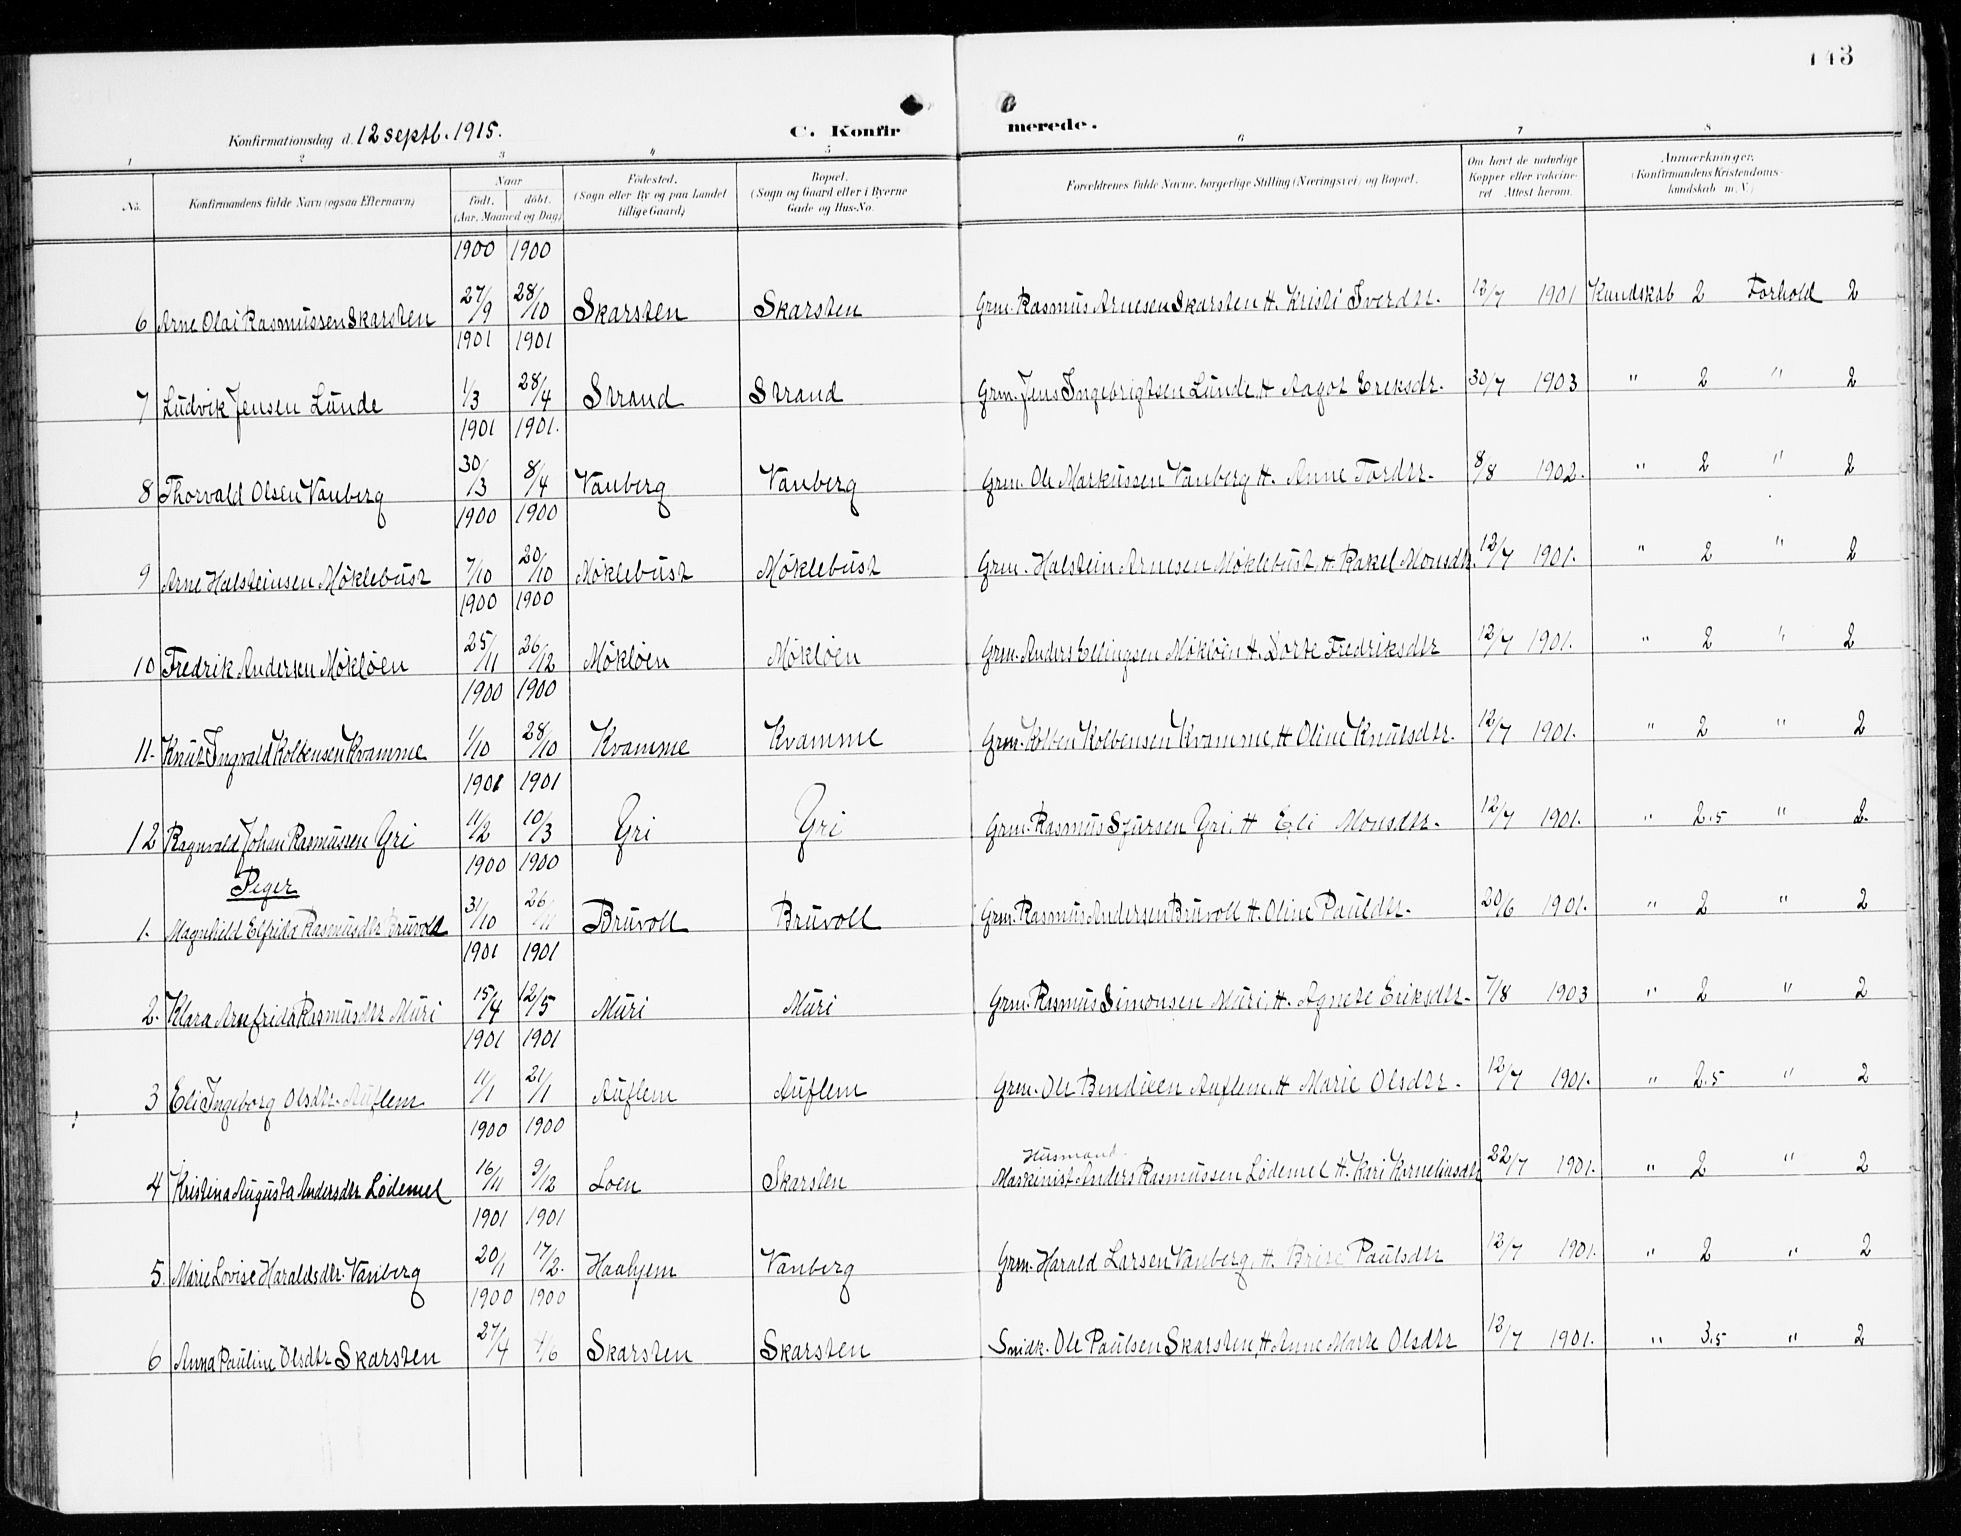 143
Konfirmationsdag d. 12 septb. 1915. C. Konfirmerede.
1 2 3 4 5 6 7 8
No. Konfirmandens fulde Navn (ogsaa Efternavn) Naar født. døbt. (Aar, Maaned og Dag) Fødested. (Sogn eller By og paa Landet tillige Gaard) Bopæl. (Sogn og Gaard eller i Byerne Gade og Hus-No. Forældrenes fulde Navne, borgerlige Stilling (Næringsvei) og Bopæl. Om havt de naturlige Kopper eller vakcineret Attest herom. Anmærkninger. (Konfirmandens Kristendomskundskab m. V.)
1900 1900
6 Arne Olai Rasmussen Skarsten 27/9 28/10 Skarsten Skarsten Grm. Rasmus Arnesen Skarsten H. Kristi Iverdtr. 12/7 1901 Kundskab 2 Forhold 2
1901 1901
7 Ludvik Jensen Lunde 1/3 28/4 Strand Strand Grm. Jens Ingebrigtsen Lunde H Aagot Eriksdtr. 30/7 1903 " 2 " 2
1901 1901.
8 Thorvald Olsen Vanberg 30/3 8/4 Vanberg Vanberg Grm. Ole Markussen Vanberg H. Anne Tordtr. 8/8 1902. " 2 " 2
1900 1900
9 Arne Halsteinsen Møklebust 7/10 20/10 Møklebust Møklebust Grm. Halstein Arnesen Møklebust, H Rakel Monsdtr. 12/7 1901. " 2 " 2
1900 1900
10 Fredrik Andersen Mökløen 25/11 26/12 Mökløen Mökløen Grm. Anders Ellingsen Mökløen H. Dorte Fredriksdtr 12/7 1901. " 2 " 2
1900 1900
11. Knut Ingvald Kolbensen Kvamme 1/10 28/10 Kvamme Kvamme Grm. Kolben Kolbensen Kvamme, H Oline Knutsdtr. 12/7 1901. " 2 " 2
1901 1901
12 Ragnvald Johan Rasmussen Yri 11/2 10/3 Yri Yri Grm. Rasmus Sjursen Yri H Eli Monsdtr. 12/7 1901. " 2.5 " 2.
1900 1900
Piger
1. Magnhild Elfrida Rasmusdtr Bruvoll 31/10 26/11 Bruvoll Bruvoll Grm. Rasmus Andersen Bruvoll H. Oline Pauldtr. 20/6 1901. " 2 " 2
1901 1901
2. Klara Arnfrida Rasmusdtr Muri 15/4 12/5 Muri Muri Grm. Rasmus Simonsen Muri, H. Agnete Eriksdtr. 7/8 1903 " 2 " 2
1901 1901
3 Eli Ingeborg Olsdtr. Auflem 11/1 21/1 Auflem Auflem Grm. Ole Bendixen Auflem, H Marie Olsdtr. 12/7 1901. " 2.5 " 2
1900 1900
Husmand
4 Kristina Augusta Andersdtr Lödemel 16/11 9/12 Loen Skarsten Maskinist Anders Rasmussen Lödemel H. Kari Korneliusdtr 22/7 1901. " 2 " 2
1901 1901
5. Marie Lovise Haraldsdtr. Vanberg 20/1 17/2. Haahjem Vanberg Grm. Harald Larsen Vanberg, H. Brite Paulsdtr 12/7 1901. " 2 " 2
1900 1900
6 Anna Pauline Olsdtr Skarsten 27/4 4/6 Skarsten Skarsten Smidk. Ole Paulsen Skarsten, H Anne Marte Olsdtr 12/7 1901. " 3.5 " 2